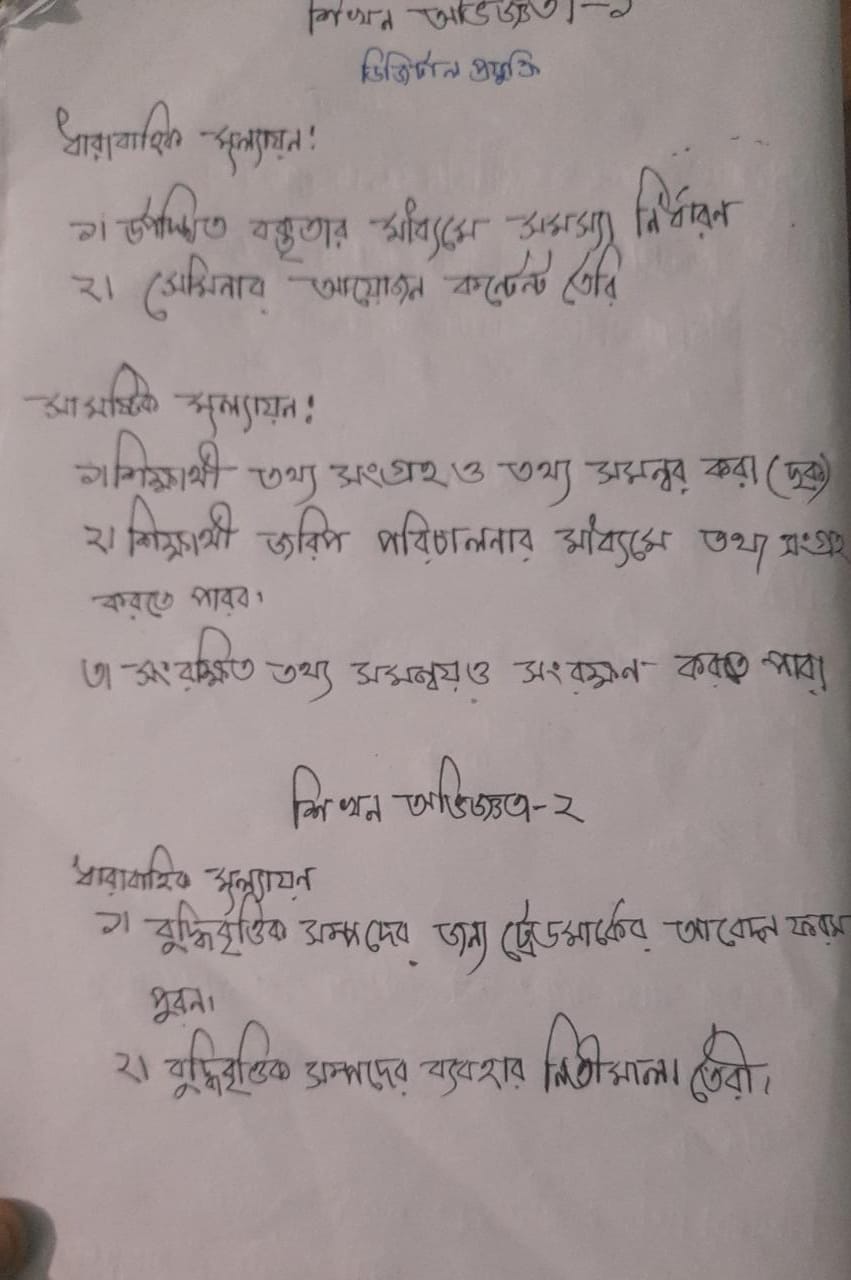 শিখন অভিজ্ঞতা-১
ডিজিটাল প্রযুক্তি
ধারাবাহিক মূল্যায়ন:
১। উপস্থিত বক্তৃতার মাধ্যমে সমস্যা নির্ধারন
২। সেমিনার আয়োজন কন্টেন্ট তৈরি
সামষ্টিক মূল্যায়ন:
১। শিক্ষার্থী তথ্য সংগ্রহ ও তথ্য সমন্বয় করা (ছক)
২। শিক্ষার্থী জরিপ পরিচালনার মাধ্যমে তথ্য সংগ্রহ
করতে পারব।
৩। সংরক্ষিত তথ্য সমন্বয় ও সংরক্ষন করতে পারা
শিখন অভিজ্ঞতা-২
ধারাবাহিক মূল্যায়ন
১। বুদ্ধিবৃত্তিক সম্পদের জন্য ট্রেডমার্কের আবেদন ফরম
পুরন।
২। বুদ্ধিবৃত্তিক সম্পদের ব্যবহার নিতীমালা তৈরী।